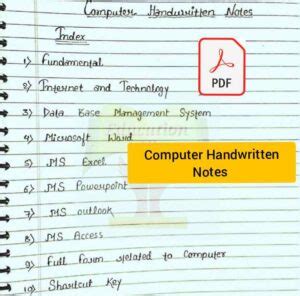 Computer Handwritten Notes
Index
1) Fundamental
2) Internet and Technology
3) Data Base Management System
4) Microsoft Word
5) MS Excel
6) MS Powerpoint
7) MS outlook
8) MS Access
9) Full Form related to Computer
10) Shortcut Key
PDF
Computer Handwritten
Notes